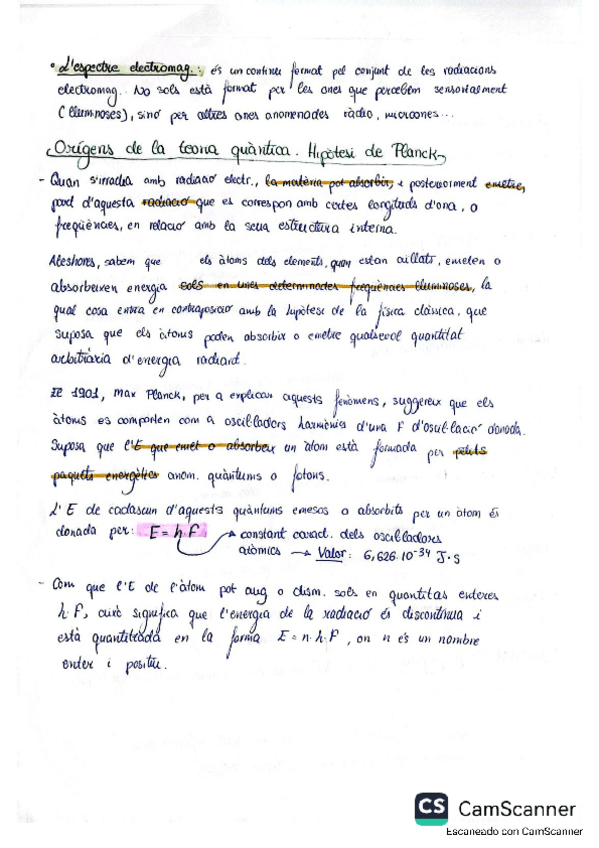 • L'espectre electromag.: és un continu format pel conjunt de les radiacions
electromag.. No sols està format per les ones que percebem sensorialment
(lluminoses), sinó per altres ones anomenades ràdio, microones...
Orígens de la teoria quàntica. Hipòtesi de Planck
- Quan s'irradia amb radiació electr., la matèria pot absorbir, i posteriorment emetre,
part d'aquesta radiació que es correspon amb certes longituds d'ona, o
freqüències, en relació amb la seua estructura interna.
Aleshores, sabem que els àtoms dels elements, quan estan aïllats, emeten o
absorbeixen energia sols en unes determinades freqüències lluminoses, la
qual cosa entra en contraposició amb la hipòtesi de la física clàssica, que
suposa que els àtoms poden absorbir o emetre qualsevol quantitat
arbitrària d'energia radiant.
1901, Max Planck, per a explicar aquests fenòmens, suggereix que els
àtoms es comporten com a oscil·ladors harmònics d'una F d'oscil·lació donada.
Suposa que l'E que emet o absorbeix un àtom està formada per petits
paquets energètics anom. quàntums o fotons.
L'E de cadascun d'aquests quàntums emesos o absorbits per un àtom és
donada per: E = h·F → constant caract. dels oscil·ladores
atòmics → Valor: 6,626·10⁻³⁴ J·s
- Com que l'E de l'àtom pot aug o dism. sols en quantitas enteres
h·F, això significa que l'energia de la radiació és discontínua i
està quantitzada en la forma E = n·h·F, on n és un nombre
enter i positiu.
CS CamScanner
Escaneado con CamScanner